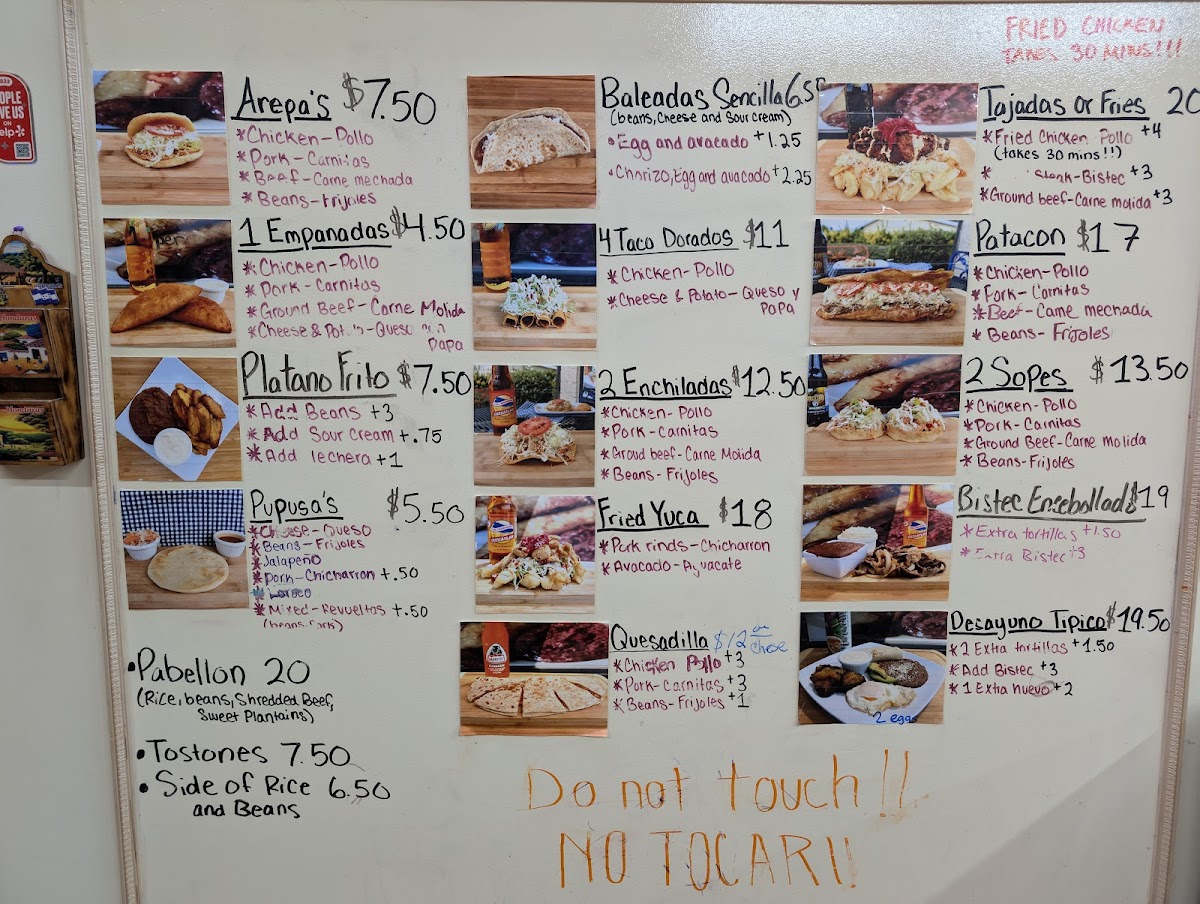 FRIED CHICKEN
TAKES 30 MINS!!!
Arepa's $7.50
*Chicken-Pollo
*Pork-Carnitas
*Beef-Carne mechada
*Beans-Frijoles
1 Empanadas $4.50
*Chicken-Pollo
*Pork-Carnitas
*Ground Beef-Carne Molida
*Cheese & -Queso
Papa
Platano Frito $7.50
*Add Beans +3
*Add Sour Cream +.75
*Add lechera +1
Pupusa's $5.50
*Cheese-Queso
*Beans-Frijoles
*Jalapeño
*Pork-Chicharron +.50
*Loroco
*Mixed-Revueltos +.50
(beans, Pork)
•Pabellon 20
(Rice, beans, Shredded Beef,
Sweet Plantains)
•Tostones 7.50
•Side of Rice 6.50
and Beans
Baleadas Sencilla 6.50
(beans, Cheese and Sour cream)
•Egg and avocado +1.25
•Chorizo, Egg and avacado +2.25
4 Taco Dorados $11
*Chicken-Pollo
*Cheese & Potato-Queso y
Papa
2 Enchiladas $12.50
*Chicken-Pollo
*Pork-Carnitas
*Groud beef-Carne Molida
*Beans-Frijoles
Fried Yuca $18
*Pork rinds-Chicharron
*Avocado-Aguacate
Quesadilla $12
*Chicken Pollo +3
*Pork-Carnitas +3
*Beans-Frijoles +1
Tajadas or Fries 20
*Fried Chicken Pollo +4
(takes 30 mins!!)
* Steak-Bistec +3
*Ground beef-Carne molida +3
Patacon $17
*Chicken-Pollo
*Pork-Carnitas
*Beef-Carne mechada
*Beans-Frijoles
2 Sopes $13.50
*Chicken-Pollo
*Pork-Carnitas
*Ground Beef-Carne molida
*Beans-Frijoles
Bistec Encebollado $19
*Extra tortillas +1.50
*Extra Bistec +3
Desayuno Tipico $19.50
*2 Extra tortillas +1.50
*Add Bistec +3
*1 Extra huevo +2
2 eggs
Do not touch!!
NO TOCAR!!